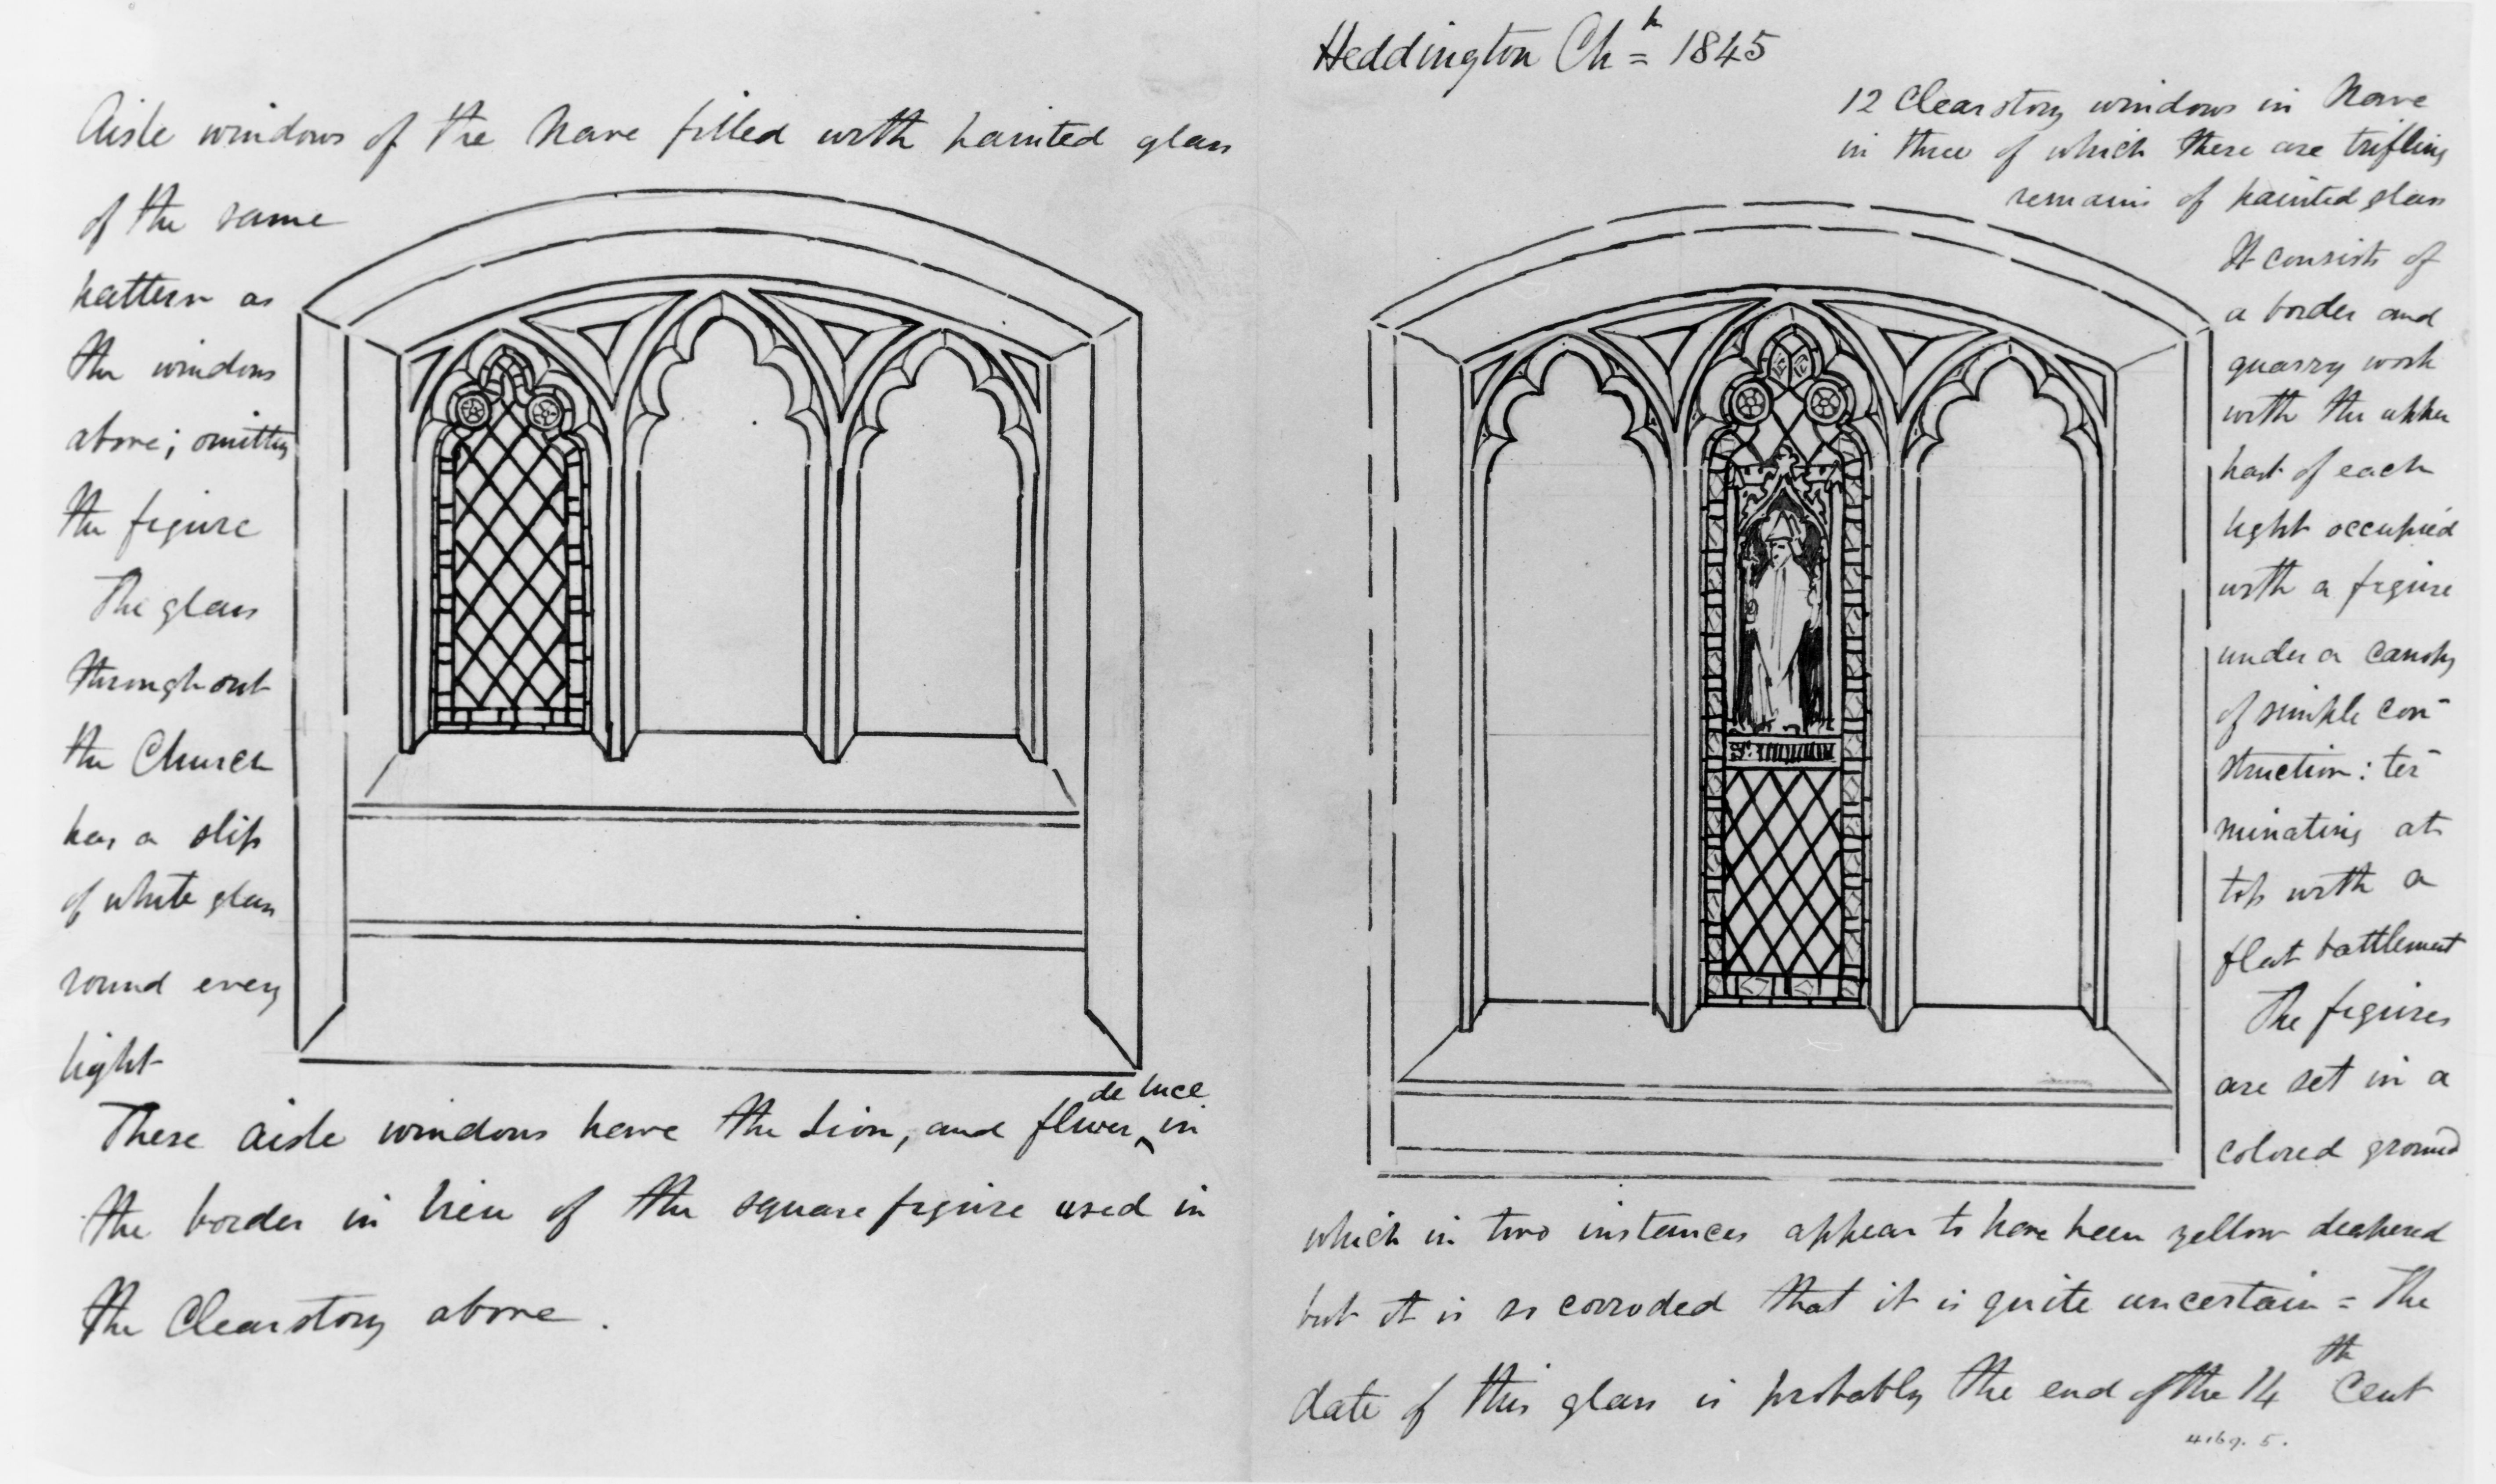 Aisle windows of the Nave filled with painted glass
of the same
pattern as
the windows
above; omitting
the figure
The glass
throughout
the Church
has a slip
of white glass
round every
light
These aisle windows have the Lion, and flower de luce in
the border in lieu of the square figure used in
the Clearstory above.
Heddington Chh= 1845
12 Clearstory windows in Nave
in three of which there are trifling
remains of painted glass
It consists of
a border and
quarry work
with the upper
part of each
light occupied
with a figure
under a canopy
of simple con-
struction: ter-
minating at
top with a
flat battlement
The figures
are set in a
colored ground
which in two instances appear to have been yellow deapered
but it is so corroded that it is quite uncertain = The
date of this glass is probably the end of the 14th Cent
4169. 5.